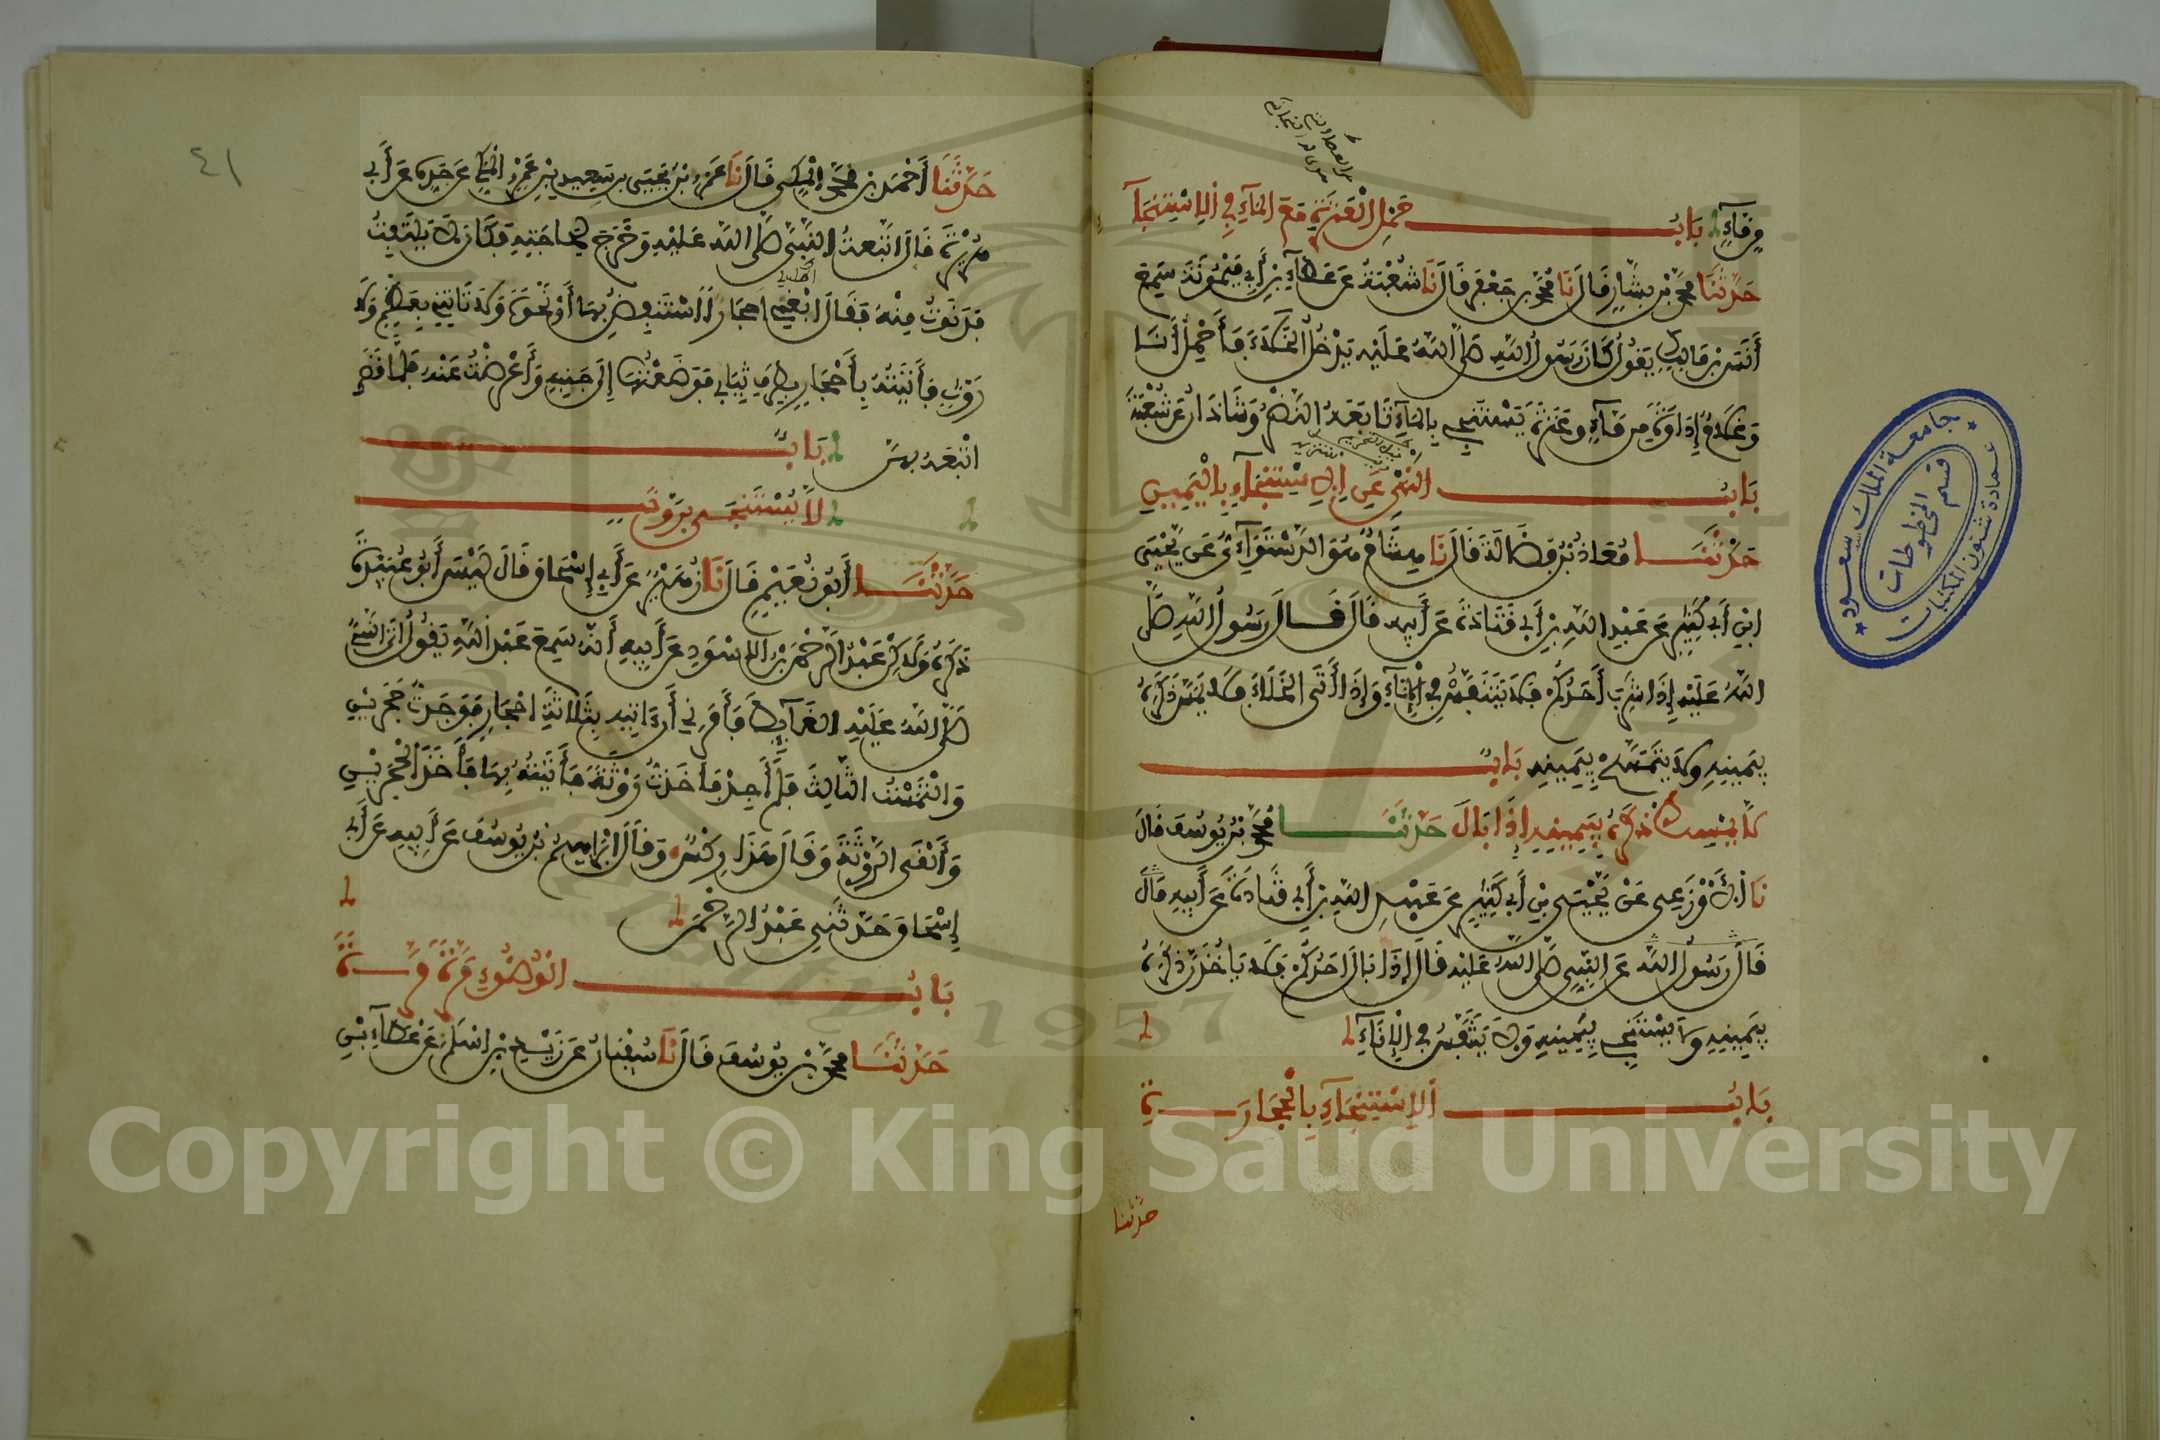 من ماء باب حمل العنزة مع الماء في الاستنجاء
حدثنا محمد بن بشار قال نا محمد بن جعفر قال نا شعبة عن عطاء بن أبي ميمونة سمع
أنس بن مالك يقول كان رسول الله صلى الله عليه يدخل الخلاء فأحمل أنا
وغلام إداوة من ماء وعنزة يستنجي بالماء تابعه النضر وشاذان عن شعبة
باب النهي عن الاستنجاء باليمين
حدثنا معاذ بن فضالة قال نا هشام هو الدستوائي عن يحيى
ابن أبي كثير عن عبد الله بن أبي قتادة عن أبيه قال قال رسول الله صلى
الله عليه إذا شرب أحدكم فلا يتنفس في الإناء وإذا أتى الخلاء فلا يمس ذكره
بيمينه ولا يتمسح بيمينه باب
لا يمسك ذكره بيمينه إذا بال حدثنا محمد بن يوسف قال
نا الأوزعي عن يحيى بن أبي كثير عن عبد الله بن أبي قتادة عن أبيه قال
قال رسول الله عن النبي صلى الله عليه قال إذا بال أحدكم فلا ياخذن ذكره
بيمينه ولا يستنجي بيمينه ولا يتنفس في الإناء
باب الاستنجاء بالحجارة
حدثنا
٤١
حدثنا أحمد بن محمد المكي قال نا عمرو بن يحيى بن سعيد بن عمرو المكي عن جده عن أبي
هريرة قال اتبعت النبي صلى الله عليه وخرج لحاجته فكان لا يلتفت
فدنوت منه فقال ابغني احجارا استنفض بها أو نحوه ولا تاتني بعظم ولا
روث فأتيته بأحجار بطرف ثيابي فوضعتها إلى جنبه وأعرضت عنه فلما قضى
اتبعه بهن باب
لا يستنجى بروث
حدثنا أبو نعيم قال نا زهير عن أبي إسحاق قال ليس أبو عبيدة
ذكره ولكن عبد الرحمن بن الاسود عن أبيه أنه سمع عبد الله يقول اتى النبي
صلى الله عليه الغائط فأمرني أن اتيه بثلاثة احجار فوجدت حجرين
والتمست الثالث فلم أجد فاخذت روثة فأتيته بها فأخذ الحجرين
وألقى الروثة وقال هذا ركس وقال ابراهيم بن يوسف عن أبيه عن أبي
إسحاق حدثني عبد الرحمن
باب الوضوء مرة مرة
حدثنا محمد بن يوسف قال نا سفيان عن زيد بن اسلم عن عطاء بن
جامعة الملك سعود
عمادة شئون المكتبات
قسم المخطوطات
1957
Copyright © King Saud University